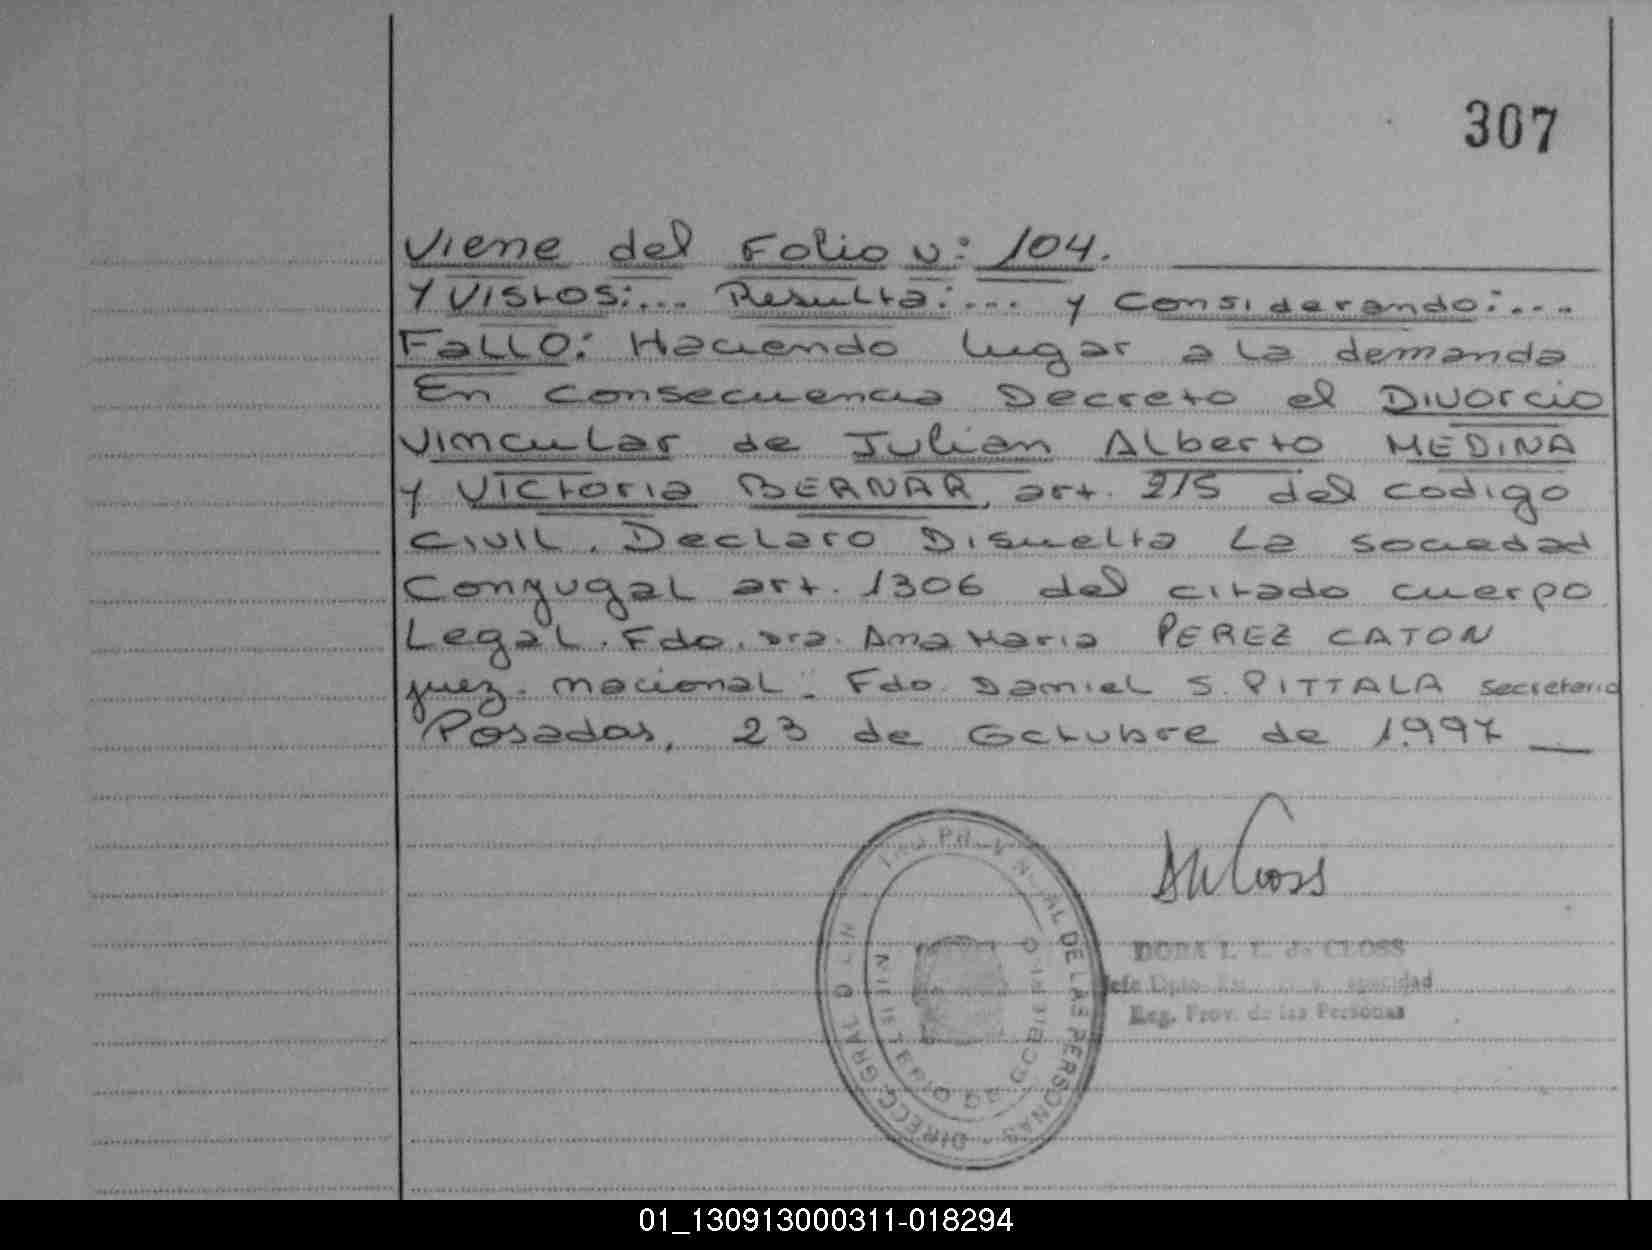 307
Viene del Folio N: 104.
Y Vistos:... Resulta:... y Considerando:...
Fallo: Haciendo lugar a la demanda
En Consecuencia Decreto el Divorcio
Vincular de Julian Alberto MEDINA
y Victoria BERNAR, art. 215 del codigo
civil. Declaro Disuelta La sociedad
Conyugal art. 1306 del citado cuerpo
Legal. Fdo. Dra. Ana Maria PEREZ CATON
juez. nacional. Fdo. Daniel S. PITTALA secretario
Posadas, 23 de Octubre de 1.997
DORA I. L. de CLOSS
Jefe Dpto.
Reg. Prov. de las Personas
DIRECC. GRAL. DEL REG. PROVINCIAL DE LAS PERSONAS
MINISTERIO DE GOBIERNO
01_130913000311-018294